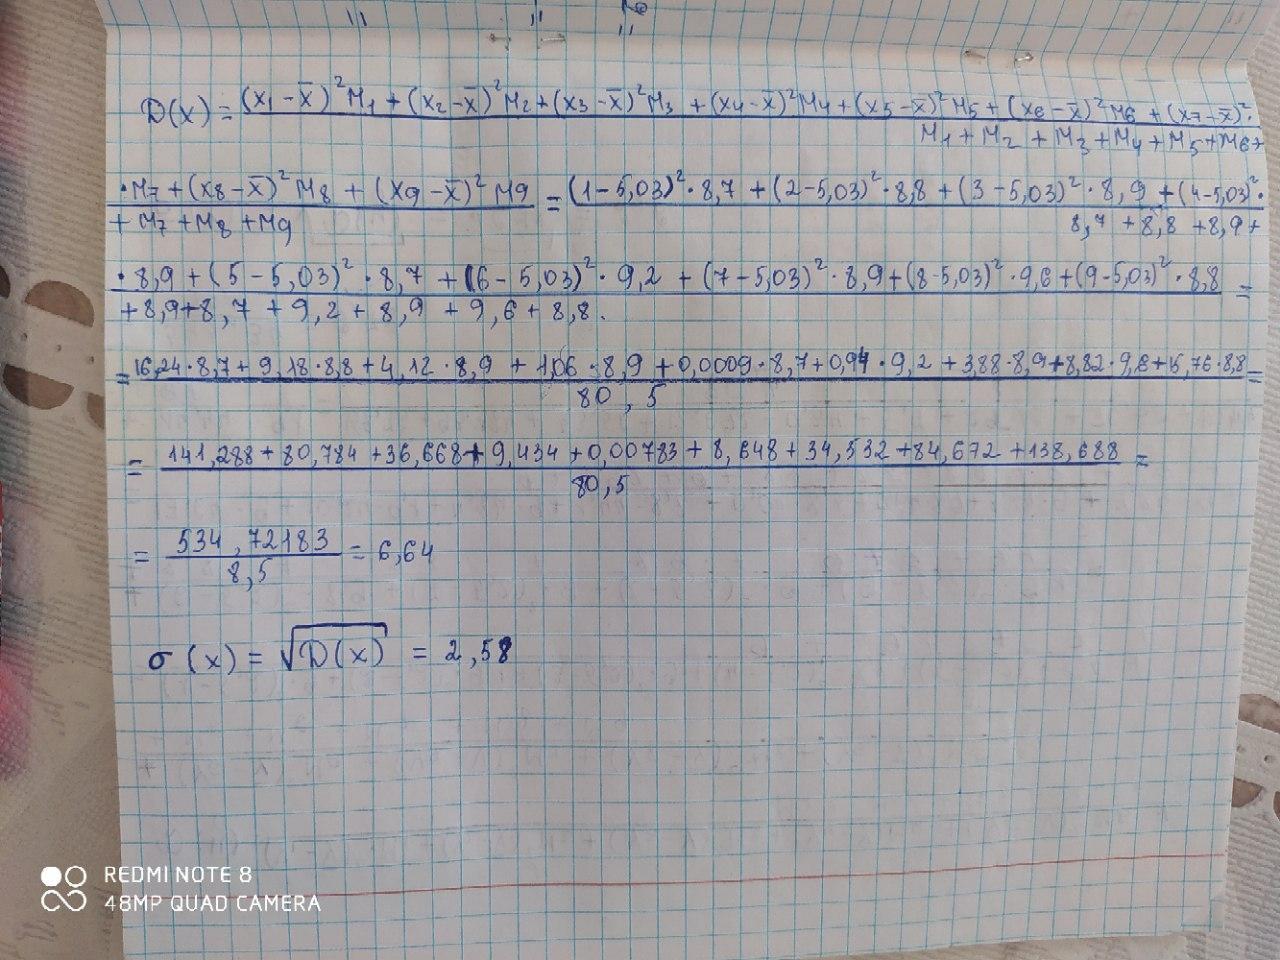 D(x) = (x1 - x̅)²M1 + (x2 - x̅)²M2 + (x3 - x̅)²M3 + (x4 - x̅)²M4 + (x5 - x̅)²M5 + (x6 - x̅)²M6 + (x7 - x̅)²·
M1 + M2 + M3 + M4 + M5 + M6 +
·M7 + (x8 - x̅)²M8 + (x9 - x̅)²M9 = (1 - 5,03)²·8,7 + (2 - 5,03)²·8,8 + (3 - 5,03)²·8,9 + (4 - 5,03)²·
+ M7 + M8 + M9 8,7 + 8,8 + 8,9 +
·8,9 + (5 - 5,03)²·8,7 + (6 - 5,03)²·9,2 + (7 - 5,03)²·8,9 + (8 - 5,03)²·9,6 + (9 - 5,03)²·8,8 =
+ 8,9 + 8,7 + 9,2 + 8,9 + 9,6 + 8,8.
= 16,24·8,7 + 9,18·8,8 + 4,12·8,9 + 1,06·8,9 + 0,0009·8,7 + 0,94·9,2 + 3,88·8,9 + 8,82·9,6 + 15,76·8,8 =
80,5
= 141,288 + 80,784 + 36,668 + 9,434 + 0,00783 + 8,648 + 34,532 + 84,672 + 138,688 =
80,5
= 534,72183 = 6,64
8,5
σ(x) = √D(x) = 2,58
REDMI NOTE 8
48MP QUAD CAMERA